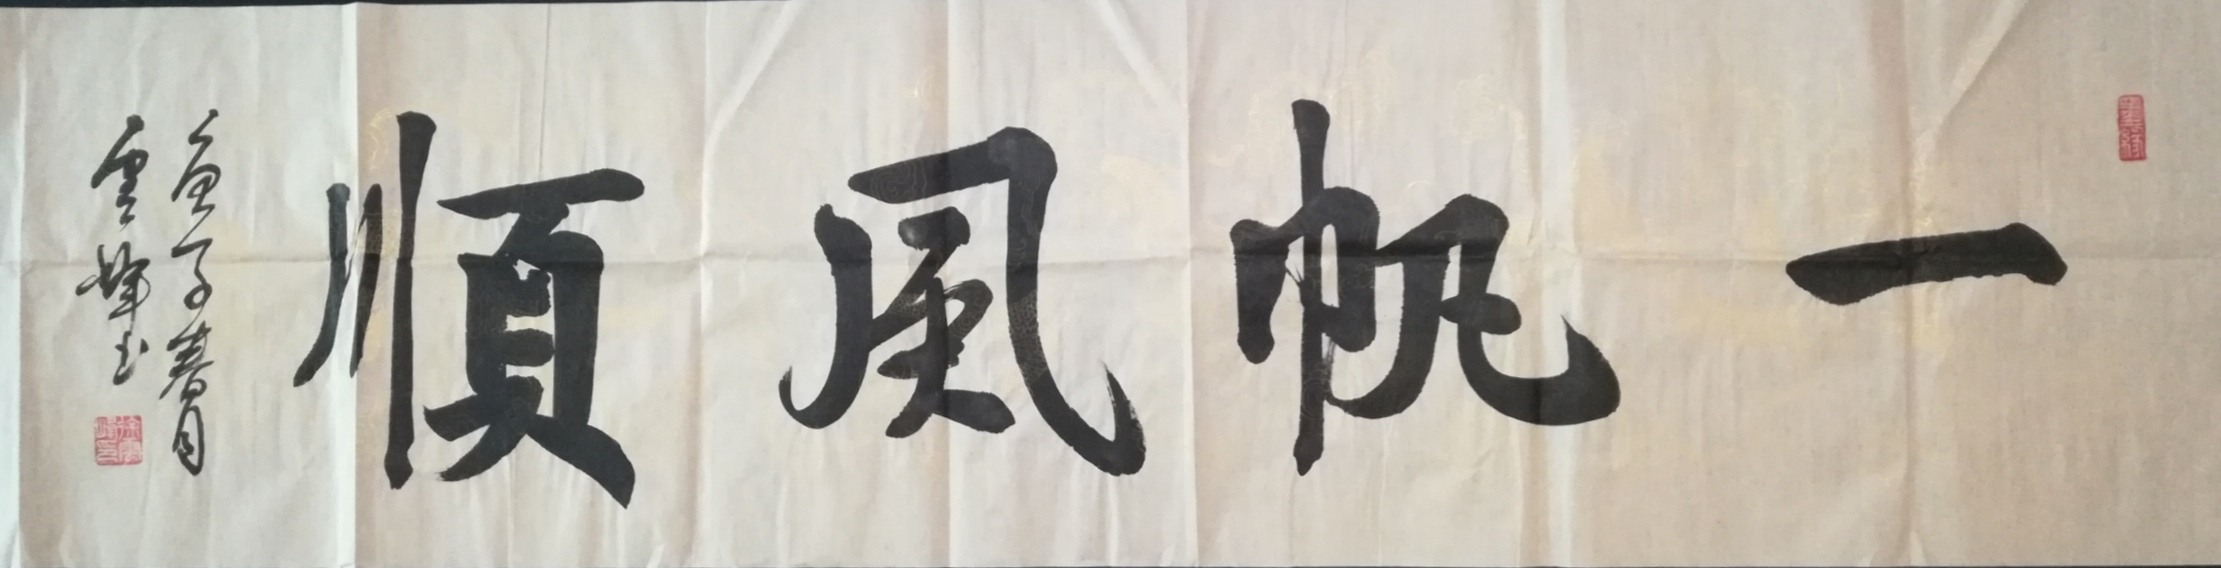 一帆風順
庚子春月
雲峰书